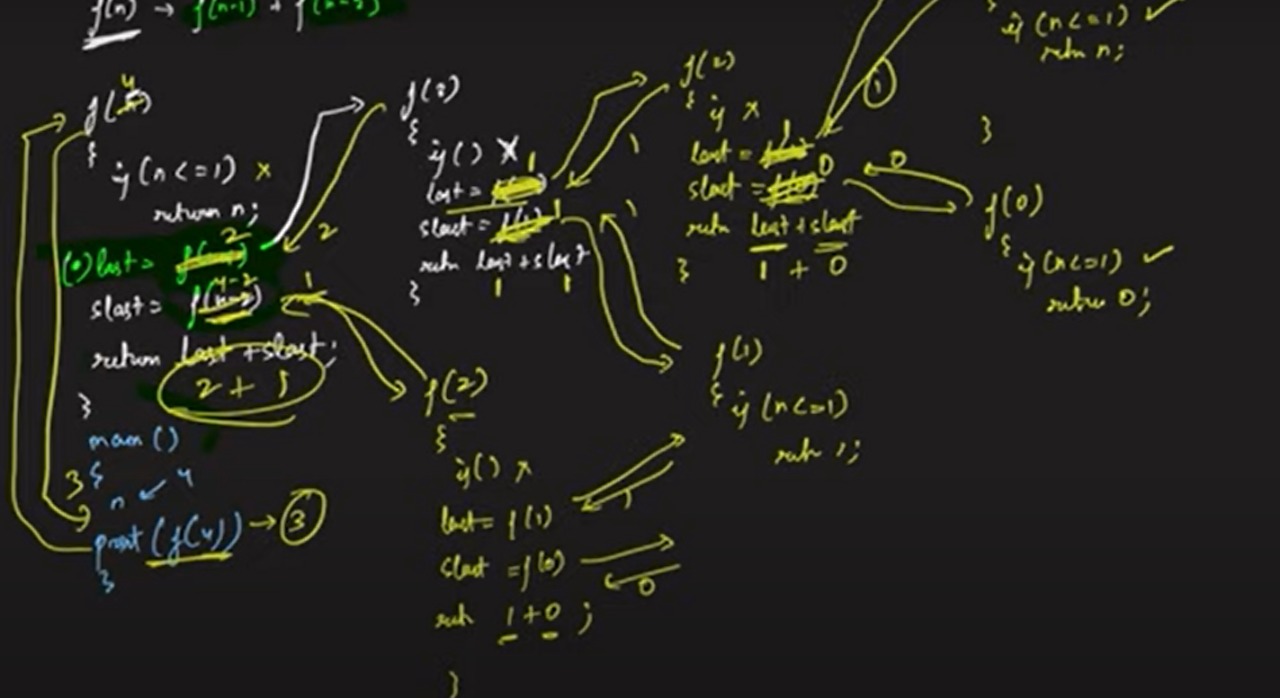 f(n) → f(n-1) + f(n-2)
f(4)
{
if (n <= 1) x
return n;
(•) last = 2
slast = f(n-2) 4-2 1
return last + slast;
2 + 1
}
main ()
{
n ← 4
print (f(4)) → 3
}
3
f(3)
{
if () X
last = 1
slast = f(1) 1
retn last + slast
1 1
}
2
f(2)
{ if x
last = 1
slast = f(0) 0
retn last + slast
1 + 0
}
1
1
if (n <= 1) ✓
retn n;
}
0
f(0)
{
if (n <= 1) ✓
return 0;
1
f(1)
{ if (n <= 1)
retn 1;
f(2)
{
if () x
last = f(1)
slast = f(0)
retn 1 + 0 ;
}
1
0